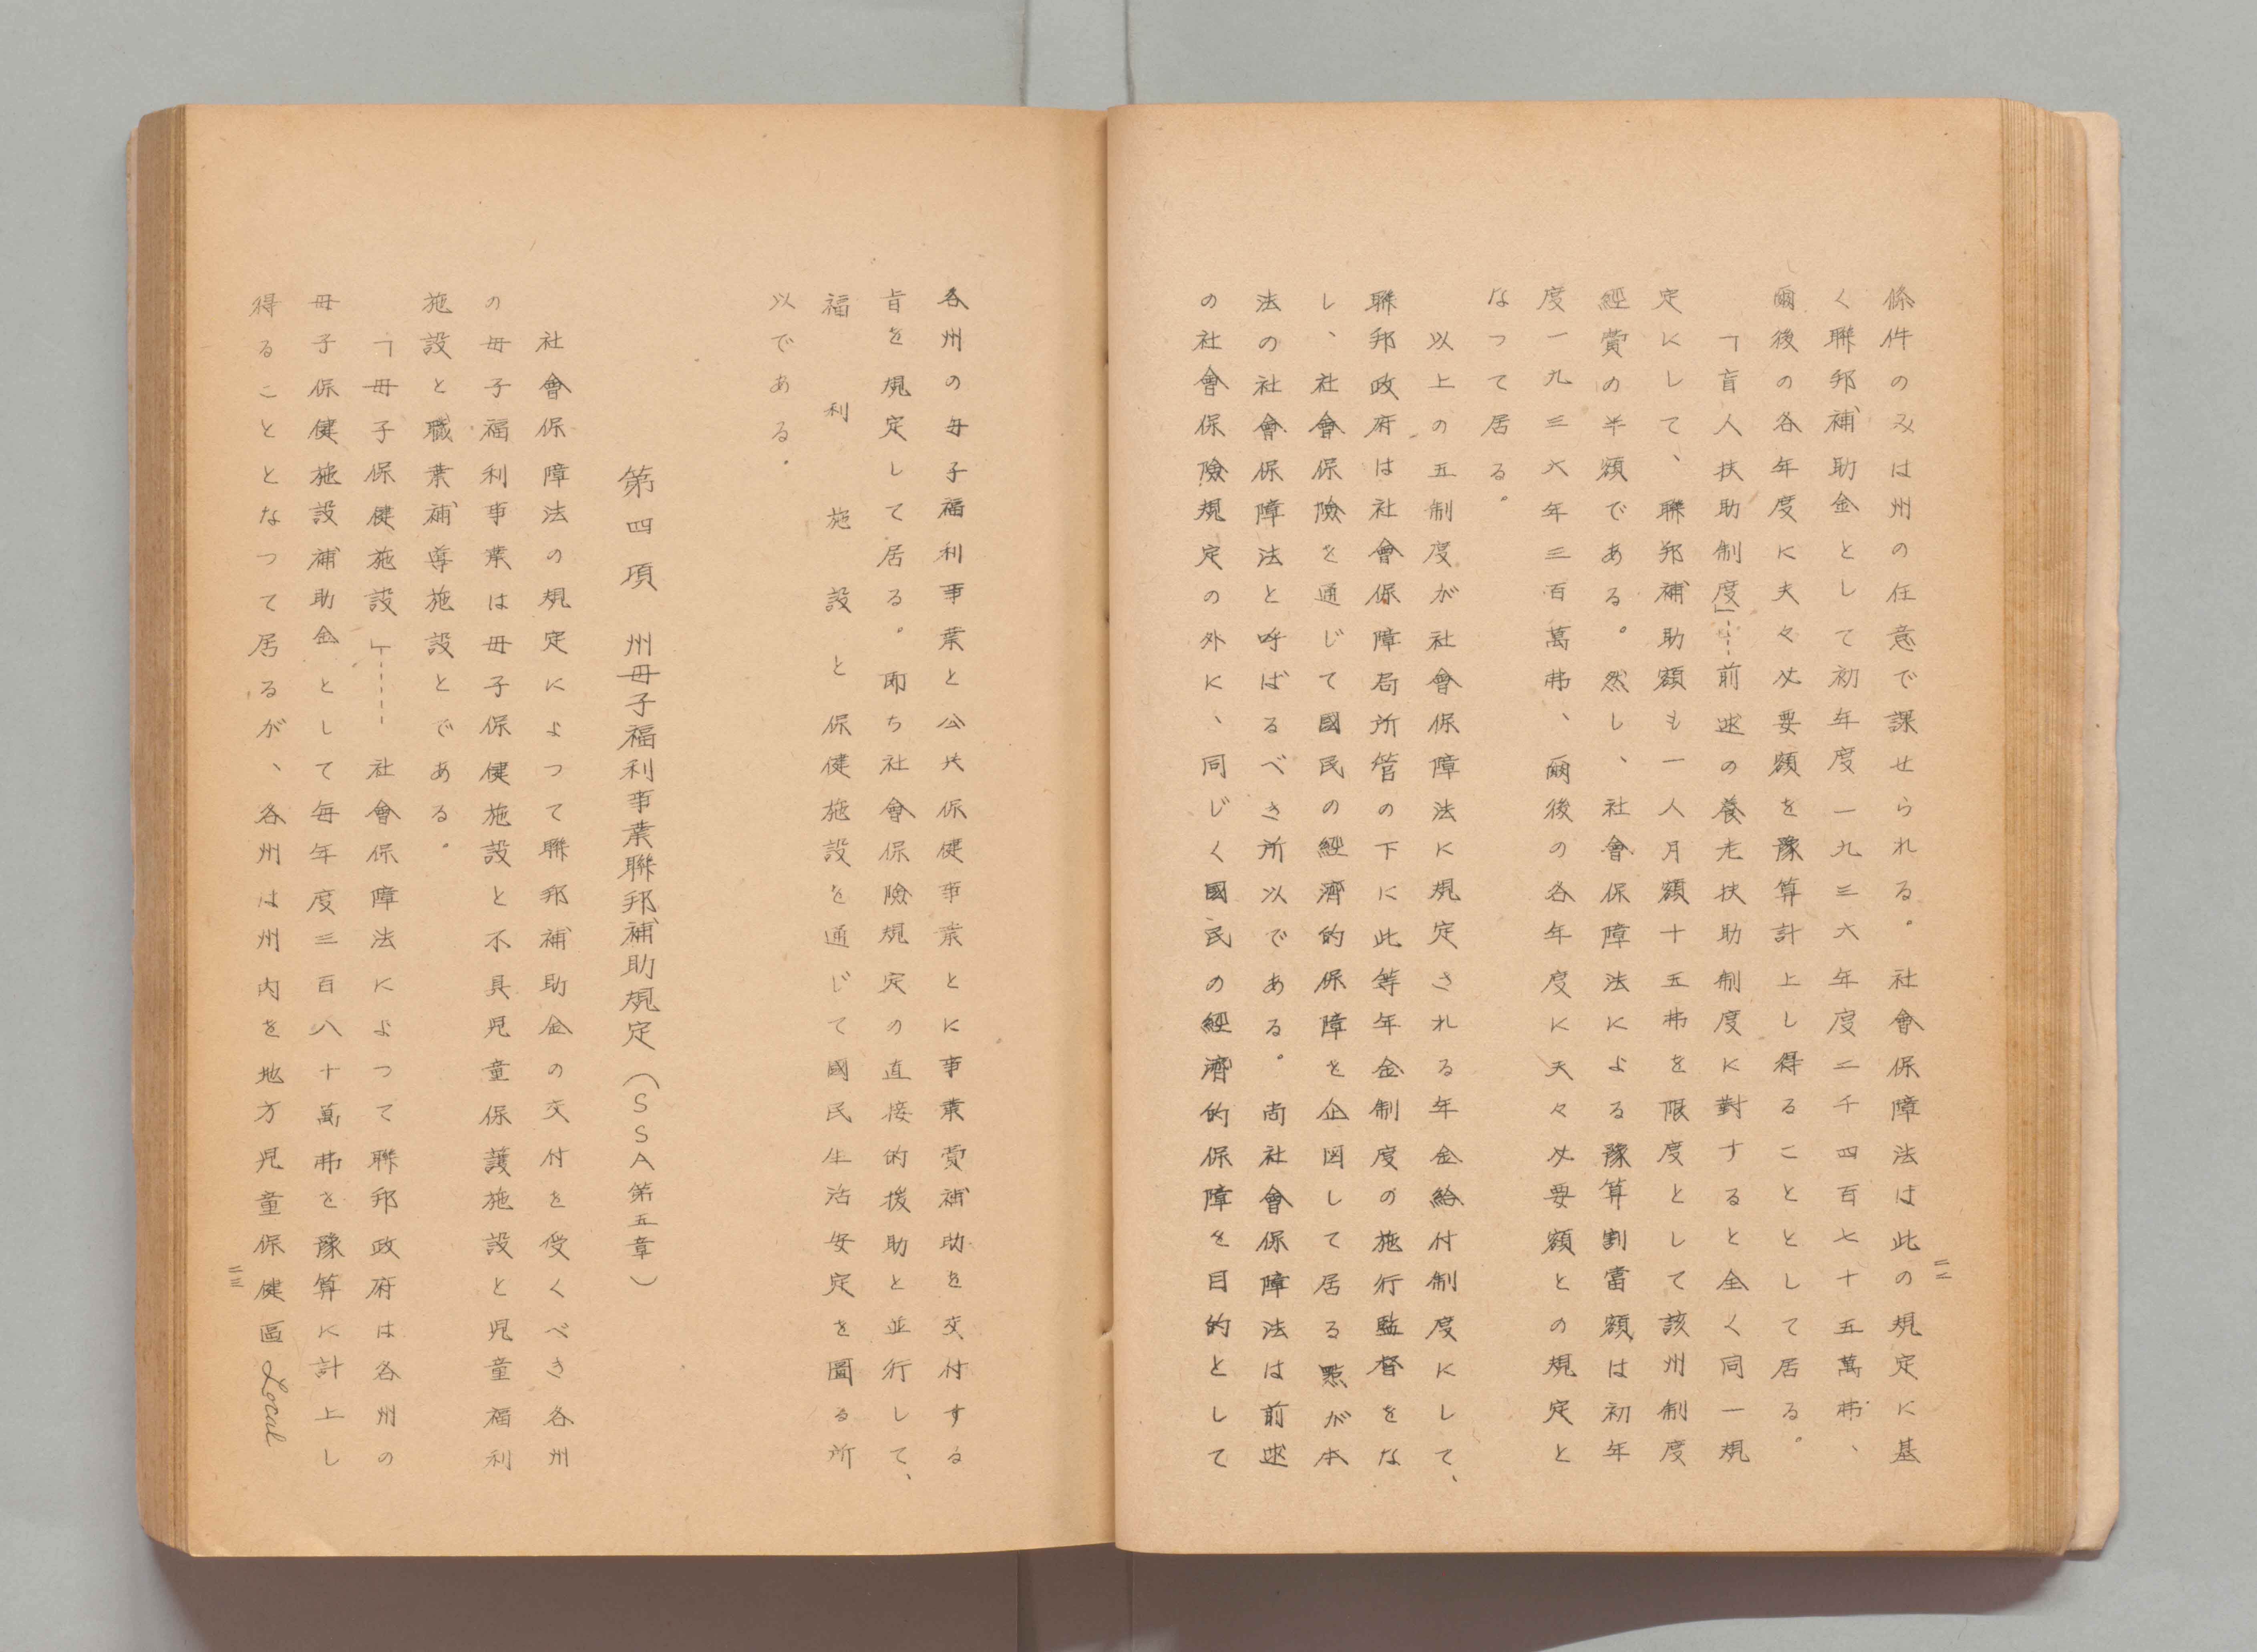 條件のみは州の任意で課せられる。社會保障法は此の規定に基
く聯邦補助金として初年度一九三六年度二千四百七十五萬弗、
爾後の各年度に夫々必要額を豫算計上し得ることとして居る。
「盲人扶助制度」……前述の養老扶助制度に對すると全く同一規
定にして、聯邦補助額も一人月額十五弗を限度として該州制度
經費の半額である。然し、社會保障法による豫算割當額は初年
度一九三六年三百萬弗、爾後の各年度に夫々必要額との規定と
なつて居る。
以上の五制度が社會保障法に規定される年金給付制度にして、
聯邦政府は社會保障局所管の下に此等年金制度の施行監督をな
し、社會保險を通じて國民の經濟的保障を企図して居る點が本
法の社會保障法と呼ばるべき所以である。尚社會保障法は前述
の社會保險規定の外に、同じく國民の經濟的保障を目的として
二二
各州の母子福利事業と公共保健事業とに事業費補助を交付する
旨を規定して居る。即ち社會保險規定の直接的援助と並行して、
福利施設と保健施設を通じて國民生活安定を圖る所
以である。
第四項 州母子福利事業聯邦補助規定（SSA第五章）
社會保障法の規定によつて聯邦補助金の交付を受くべき各州
の母子福利事業は母子保健施設と不具児童保護施設と児童福利
施設と職業補導施設とである。
「母子保健施設」……社會保障法によつて聯邦政府は各州の
母子保健施設補助金として毎年度三百八十萬弗を豫算に計上し
得ることとなつて居るが、各州は州内を地方児童保健區Local
二三